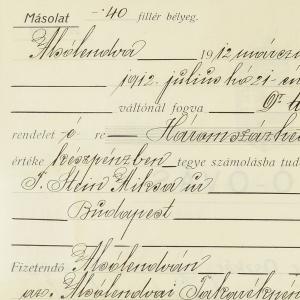 Másolat -·40 fillér bélyeg.
Alsólendva 1912 március
1912. julius hó 21-én
váltónál fogva
rendelet -é re Háromszázhe
értéke készpénzben tegye számolásba tud
T. Stein Miksa úr
Budapest
Fizetendő Alsólendván
az Alsólendvai Takarékpén